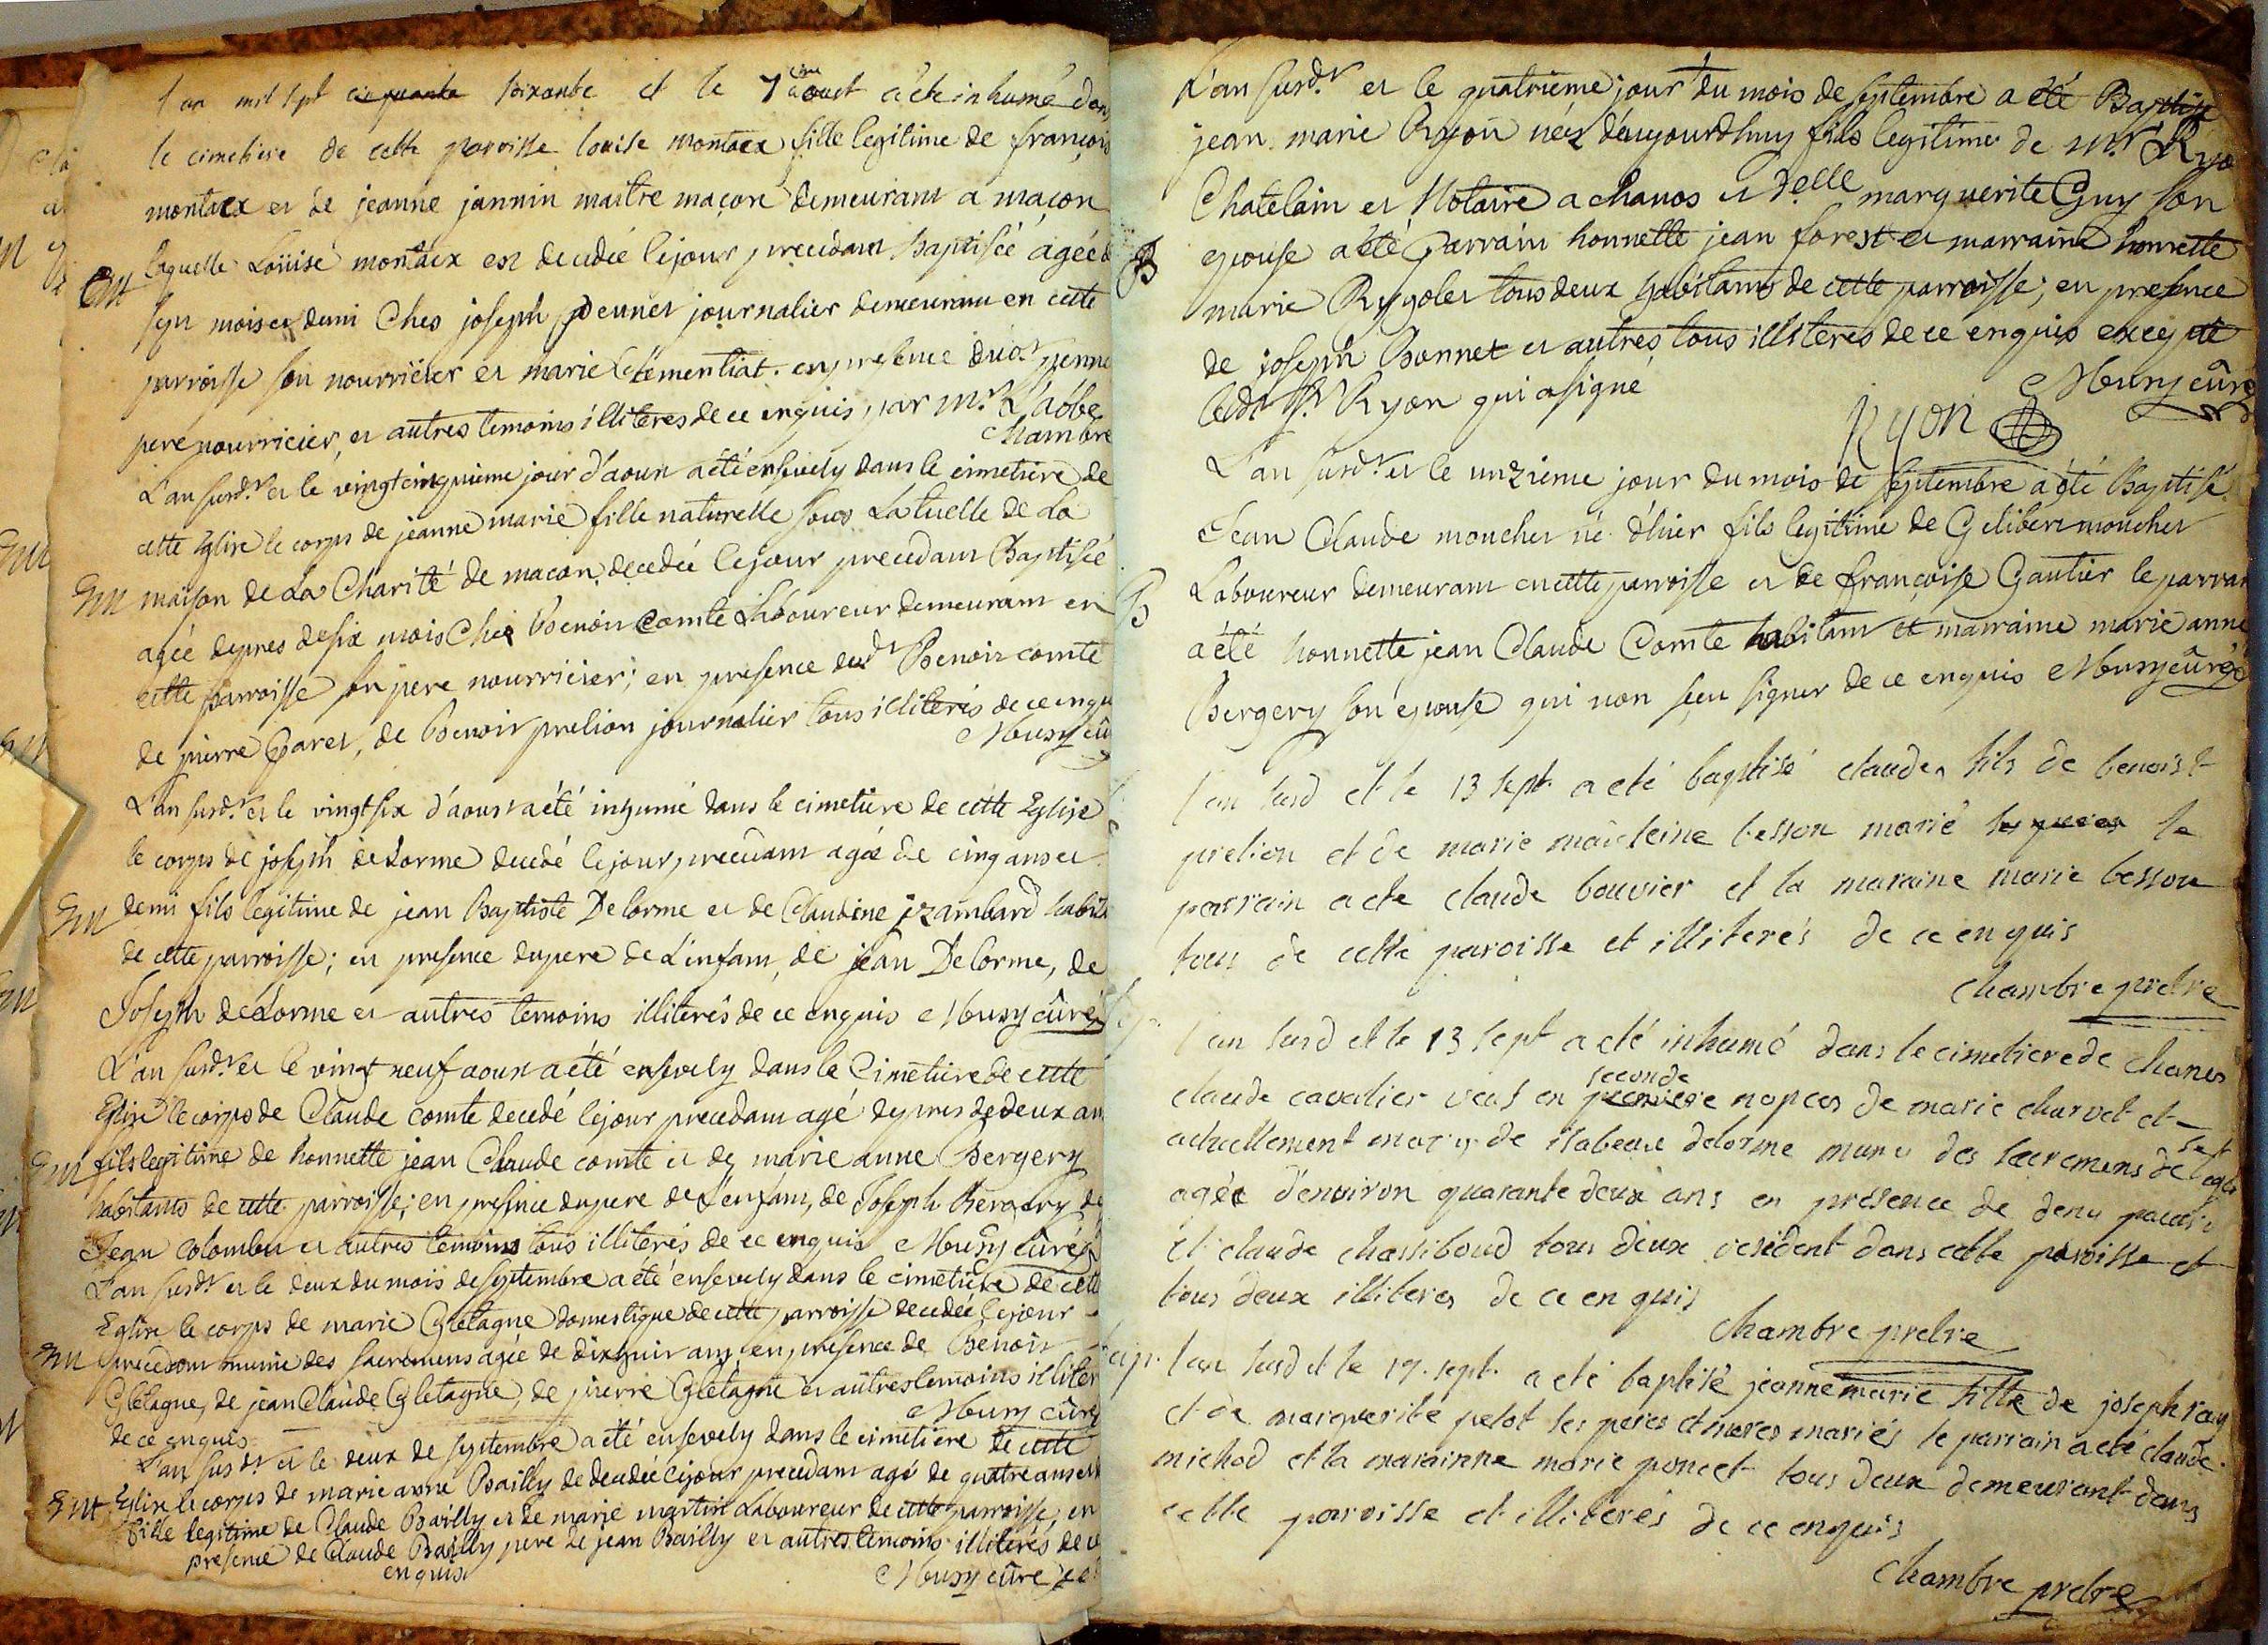 l'an mil sept cinquante soixante et le 7ème aoust a été inhumé dans
le cimetiere de cette parroisse louise montaex fille legitime de françois
montaex et de jeanne jannin maitre maçon demeurant a maçon
laquelle Loüise montaex est decedée le jour precedant Baptisée agée de
Em
sept mois et demi Ches joseph peunet journalier demeurant en cette
parroisse son nourricier et marie Clementiat. en presence dud.t
pere nourricier, et autres temoins illiteres de ce enquis, par mr. L'abbe
chambre
L'an susd.t et le vingt cinquieme jour d'aoust a été ensevely dans le cimetiere de
cette Eglise le corps de jeanne marie fille naturelle sous La tuelle de La
Em
maison de La Charité de macon, decedée le jour precedant Baptisée
agée de pres de six mois Ches Benoit Comte Laboureur demeurant en
cette parroisse son pere nourricier; en presence dud.t Benoit comte
de pierre Garet, de Benoit prelion journalier tous illiterés de ce enqu
Musy cû
L'an susd.t et le vingt six d'aoust a été inhumé dans le cimetiere de cette Eglise
le corps de joseph de Lorme decedé le jour precedant agée de cinq ans et
Em
demi fils legitime de jean Baptiste De Lorme et de Claudine jzambard habit
de cette parroisse; en presence du pere de L'enfant, de jean De Lorme, de
Joseph de Lorme et autres temoins illiterés de ce enquis Musy cûré
L'an susd.t et le vingt neuf aoust a été ensevely dans le Cimetiere de cette
Eglise le corps de Claude comte decedé le jour precedant agé de pres de deux an
Em
fils legitime de honnette jean Claude comte et de marie anne Bergery
habitants de cette parroisse; en presence du pere de L'enfant, de Joseph Bergery de
Jean Colombet et autres temoins tous illiterés de ce enquis Musy cûré
L'an susd.t et le deux du mois de septembre a été ensevely dans le cimetiere de cette
Eglise le corps de marie Gletagne domestique de cette parroisse decedée le jour
Em
precedent munie des sacremens agée de dix huit ans en presence de Benoit
Gletagne, de jean Claude Gletagne, de pierre Gletagne et autres temoins illiter
Musy cûré
de ce enquis
L'an susd.t et le deux de septembre a été ensevely dans le cimetiere de cette
Eglise le corps de marie anne Bailly de decedée le jour precedant agé de quatre ans et
Em
fille legitime de Claude Bailly et de marie martin Laboureur de cette parroisse; en
presence de Claude Bailly pere de jean Bailly et autres temoins illiterés de ce
enquis
Musy cûré
L'an susd.t et le quatrieme jour du mois de septembre a été Baptisé
jean marie Ryon néz d'aujourdhuy fils legitime de mr. Ryo
Chatelain et Notaire a chanos et d.elle marguerite Guy son
B
epouse a été parrain honnette jean forest et marraine honnette
marie Rygolet tous deux habitants de cette parroisse; en presence
de joseph Bonnet et autres tous illiteres de ce enquis excepté
led.t Sr. Ryon qui a signé
Musy cûré
Ryon
L'an susd.t et le unzieme jour du mois de septembre a été Baptisé
Jean Claude monchet né d'hier fils legitime de Gelibert monchet
B
Laboureur demeurant en cette parroisse et de françoise Gautier le parrain
a été honnette jean Claude Comte habitant et marraine marie anne
Bergery son epouse qui non sçeu signer de ce enquis Musy cûré
l'an susd et le 13 sept. a eté baptisé claude fils de benoist
prelion et de marie madeleine besson marié le
parrain a ete claude bouvier et la maraine marie besson
tous de cette paroisse et illiterés de ce enquis
chambre pretre
l'an susd et le 13 sept a eté inhumé dans le cimetiere de chanes
seconde
claude cavalier veuf en premiere nopces de marie charvet et
actuellement mary de isabeau delorme muni des sacremens de
agée d'environ quarante deux ans en presence de
et claude chassiboud tous deux resident dans cette paroisse et
tous deux illiteres de ce enquis
chambre pretre
l'an susd et le 17. sept. a eté baptisé jeanne marie fille de joseph ray
et de marguerite pelot ses peres et meres mariés le parrain a eté claude
michod et la marainne marie poncet tous deux demeurant dans
cette paroisse et illiterés de ce enquis
chambre pretre